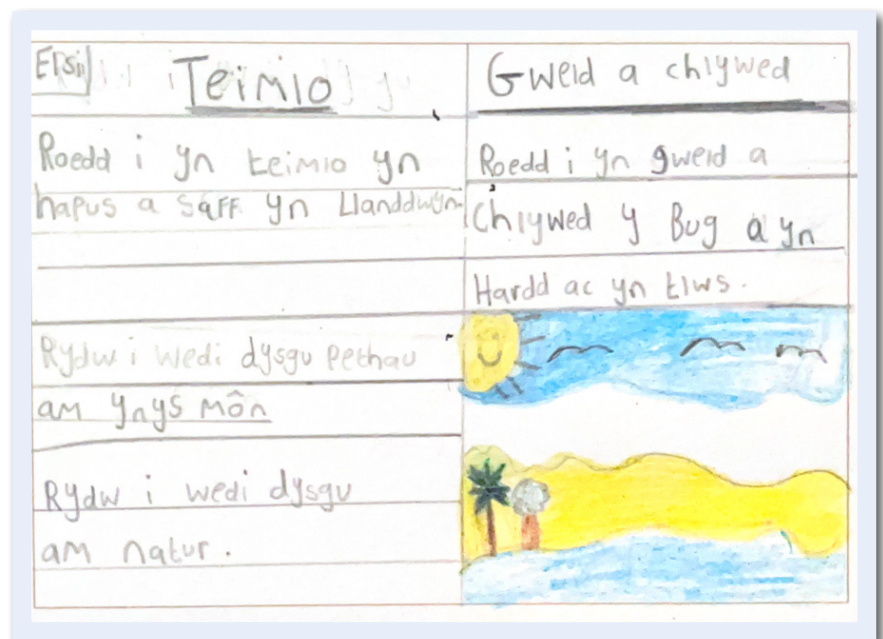 Teimlo
Roedd i yn teimlo yn
hapus a saff yn Llanddwyn.
Rydw i wedi dysgu pethau
am ynys môn
Rydw i wedi dysgu
am natur.
Gweld a chlywed
Roedd i yn gweld a
Chlywed y Bug a yn
Hardd ac yn tlws.